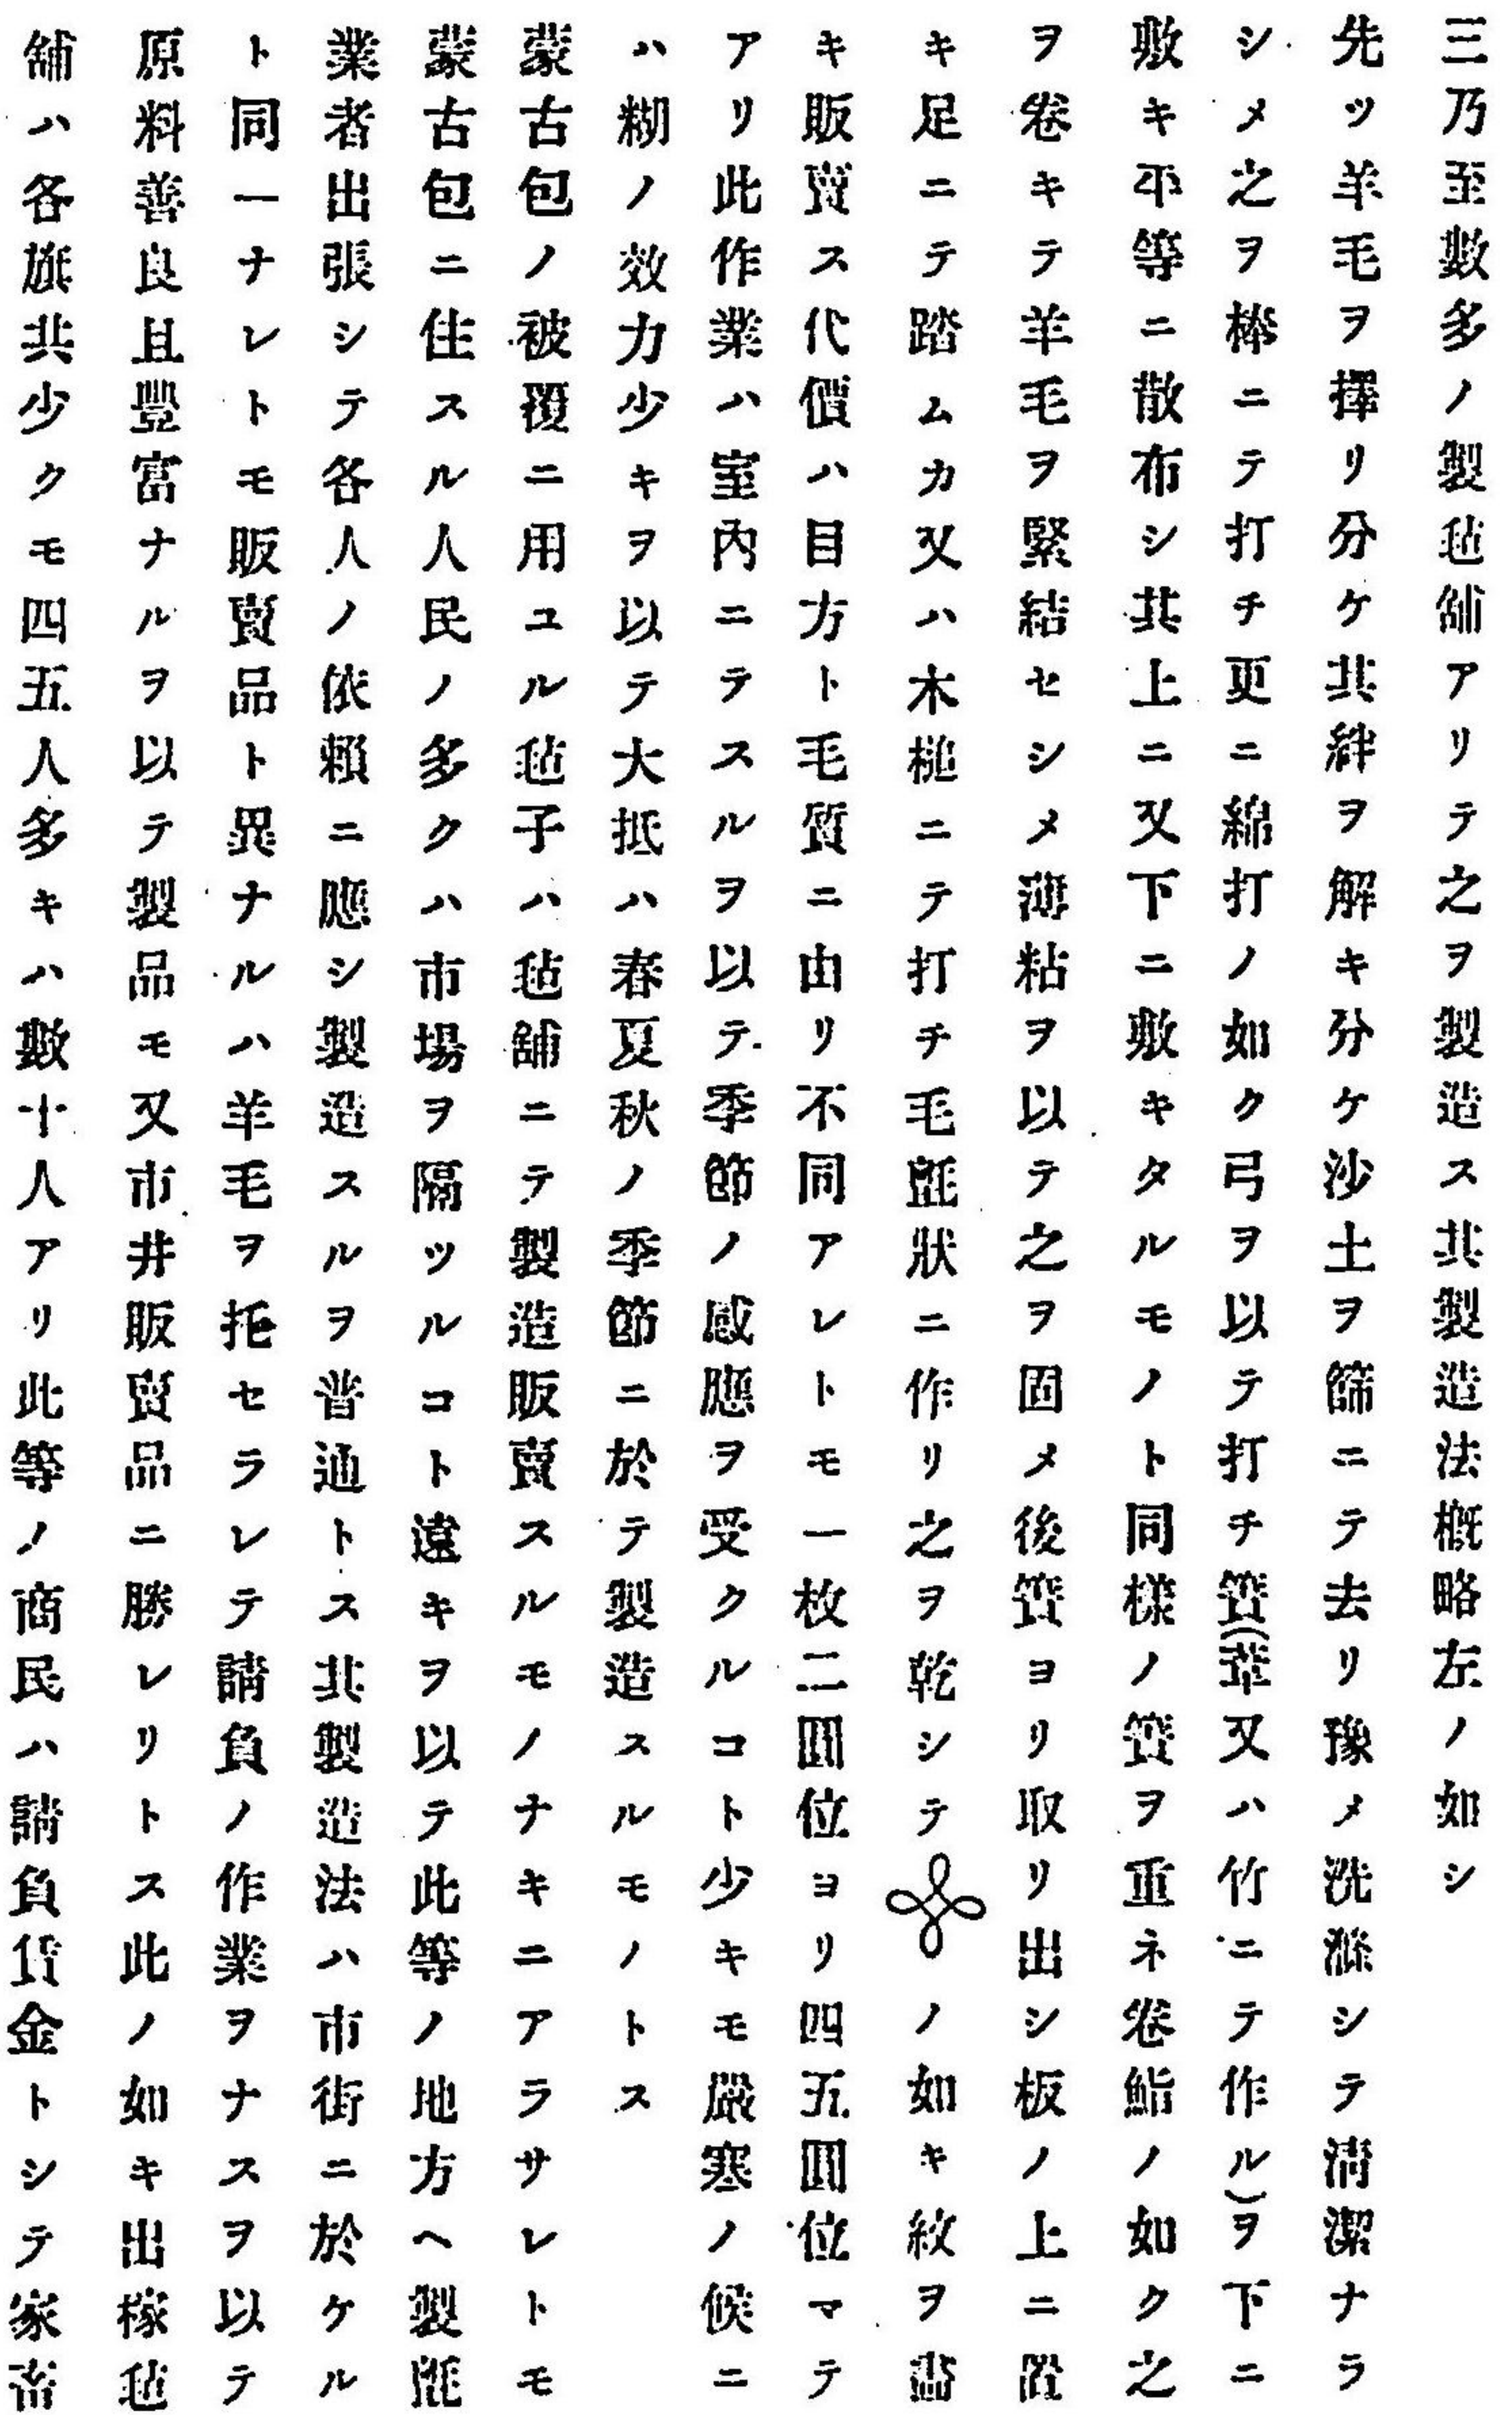 三乃至數多ノ製毡舖アリテ之ヲ製造ス其製造法槪略左ノ如シ
先ツ羊毛ヲ擇リ分ケ其絆ヲ解キ分ケ沙土ヲ篩ニテ去リ豫メ洗滌シテ淸潔ナラ
シメ之ヲ棒ニテ打チ更ニ綿打ノ如ク弓ヲ以テ打チ簀(葦又ハ竹ニテ作ル)ヲ下ニ
敷キ平等ニ散布シ其上ニ又下ニ敷キタルモノト同樣ノ簀ヲ重ネ卷鮨ノ如ク之
ヲ卷キテ羊毛ヲ緊結セシメ薄粘ヲ以テ之ヲ固メ後簀ヨリ取リ出シ板ノ上ニ置
キ足ニテ踏ムカ又ハ木槌ニテ打チ毛氈狀ニ作リ之ヲ乾シテノ如キ紋ヲ畵
キ販賣ス代價ハ目方ト毛質ニ由リ不同アレトモ一枚二圓位ヨリ四五圓位マテ
アリ此作業ハ室內ニテスルヲ以テ季節ノ感應ヲ受クルコト少キモ嚴寒ノ候ニ
ハ糊ノ效力少キヲ以テ大抵ハ春夏秋ノ季節ニ於テ製造スルモノトス
蒙古包ノ被覆ニ用ユル毡子ハ毡舖ニテ製造販賣スルモノナキニアラサレトモ
蒙古包ニ住スル人民ノ多クハ市場ヲ隔ツルコト遠キヲ以テ此等ノ地方ヘ製氈
業者出張シテ各人ノ依賴ニ應シ製造スルヲ普通トス其製造法ハ市街ニ於ケル
ト同一ナレトモ販賣品ト異ナルハ羊毛ヲ托セラレテ請負ノ作業ヲナスヲ以テ
原料善良且豐富ナルヲ以テ製品モ又市井販賣品ニ勝レリトス此ノ如キ出稼毡
舖ハ各旗共少クモ四五人多キハ數十人アリ此等ノ商民ハ請負賃金トシテ家畜